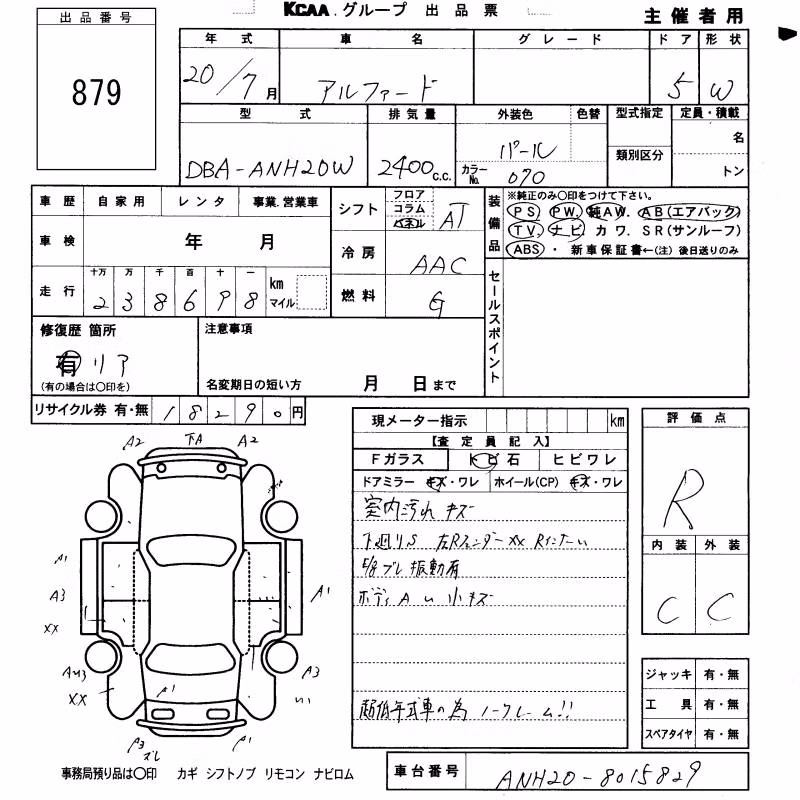 出品番号
879
KCAA.グループ 出品票
主催者用
年式 車名 グレード ドア 形状
20/7月 アルファード 5 W
型式 排気量 外装色 色替 型式指定 定員・積載
類別区分
名
トン
DBA-ANH20W 2400c.c. パール
カラーNo. 070
車歴 自家用 レンタ 事業.営業車
車検 年 月
走行 十万 万 千 百 十 一
238698 km マイル
シフト フロア コラム パネル AT
冷房 AAC
燃料 G
装備品
※純正のみ〇印をつけて下さい。
PS PW. 純AW. AB(エアバック)
TV. ナビ カワ. SR(サンルーフ)
ABS ・ 新車保証書←(注) 後日送りのみ
セールスポイント
修復歴 箇所
有 リア
(有の場合は〇印を)
注意事項
名変期日の短い方 月 日まで
リサイクル券 有・無 18290円
現メーター指示 km
【査定員記入】
Fガラス トビ石 ヒビワレ
ドアミラー キズ・ワレ ホイール(CP) キズ・ワレ
室内汚れ キズ
下廻りS 左Rフェンダーxx
ブレ 振動有
ボディ A 小キズ
超低年式車の為 ノークレーム!!
評価点
R
内装 外装
C C
ジャッキ 有・無
工具 有・無
スペアタイヤ 有・無
A2 下A A2
A1
A3
XX
A1
XX
A3
A1
A3 ズレ A1
事務局預り品は〇印 カギ シフトノブ リモコン ナビロム
車台番号 ANH20-8015829